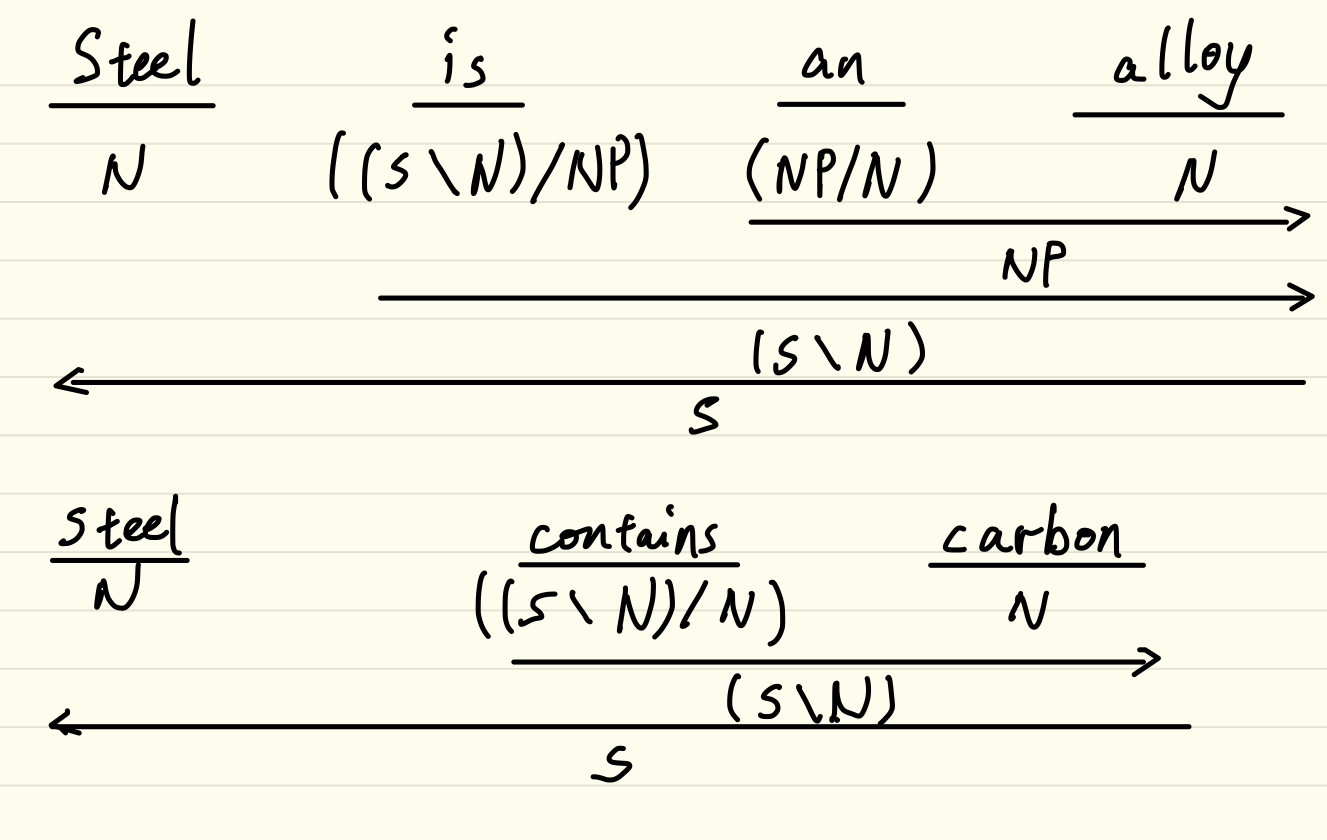 Steel is an alloy
N ((S\N)/NP) (NP/N) N
NP
(S\N)
S
steel contains carbon
N ((S\N)/N) N
(S\N)
S